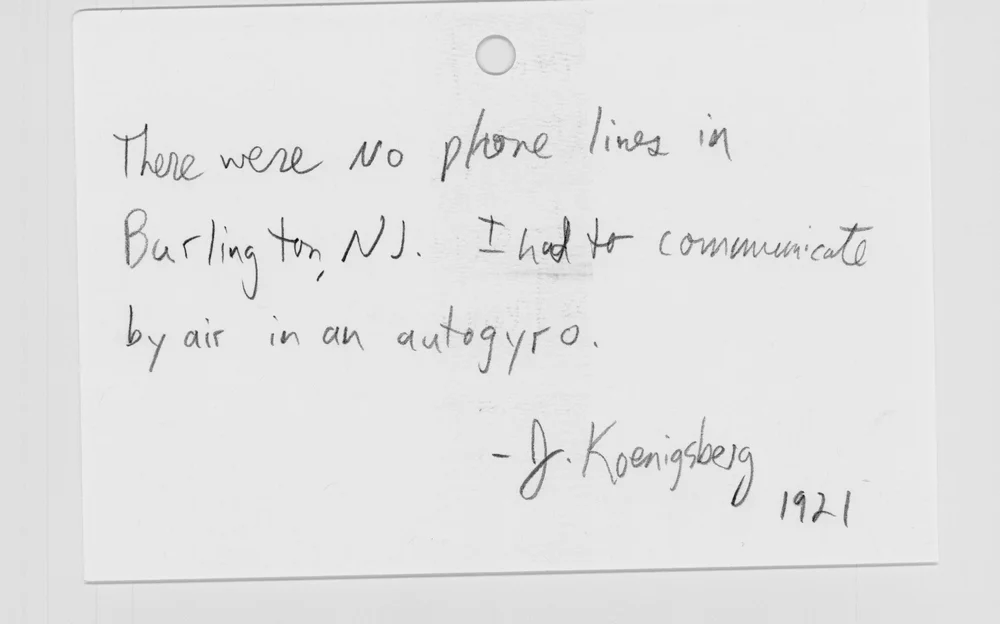 There were no phone lines in
Burlington, NJ. I had to communicate
by air in an autogyro.
- J. Koenigsberg
1921